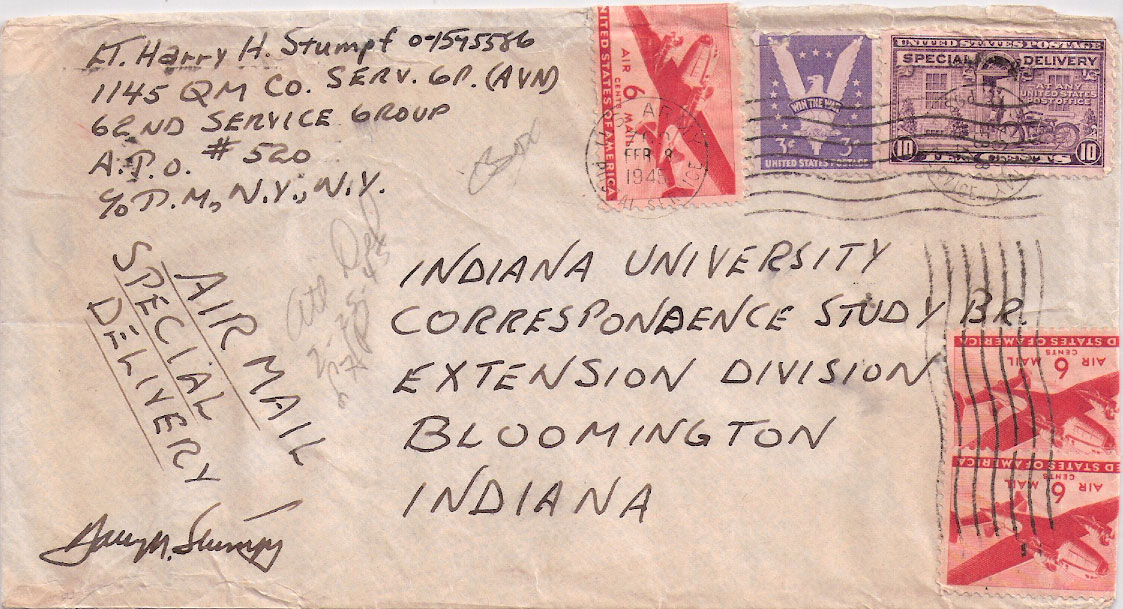 LT. Harry H. Stumpf 0-1545586
1145 QM CO. SERV. GP. (AVN)
62ND SERVICE GROUP
A.P.O. #520
c/o P.M., N.Y., N.Y.
UNITED STATES OF AMERICA
AIR MAIL
6 CENTS
WIN THE WAR
3¢ 3¢
UNITED STATES POSTAGE
UNITED STATES POSTAGE
SPECIAL DELIVERY
AT ANY
UNITED STATES
POST OFFICE
10 10
FEB 8
1945
INDIANA UNIVERSITY
CORRESPONDENCE STUDY BR.
EXTENSION DIVISION
BLOOMINGTON
INDIANA
AIR MAIL
SPECIAL
DELIVERY
Harry H. Stumpf
D STATES OF AMERICA
AIR MAIL
6 CENTS
ED STATES OF AMERICA
AIR MAIL
6 CENTS